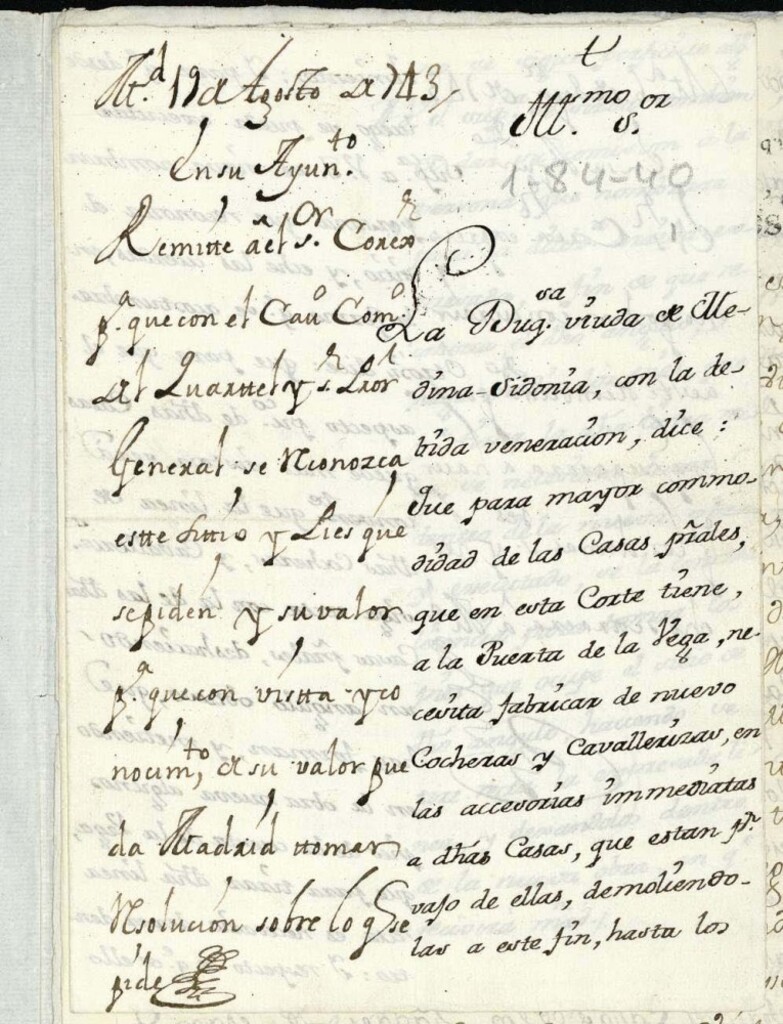 M.d 19 de Agosto de 1743,
En su Ayun.to
Remitte a el S.or Correx.r
p.a que con el Cavo Com.o
del Quarttel y s.r Pror
General se Reconozca
estte sittio y Pies que
se piden y su valor
p.a que con vistta y co
nocim.to, de su valor pue
da Madrid ttomar
Resolucion sobre lo q se
pide
t
Ill.mo S.or
1-84-40
La Duq.sa viuda de Me-
dina-Sidonia, con la de-
bida veneracion, dice:
Que para mayor commo-
didad de las Casas pr̃ales,
que en esta Corte tiene,
a la Puerta de la Vega, ne-
cesita fabricar de nuevo
Cocheras y Cavallerizas, en
las accesorias immediatas
a dh̃as Casas, que estan pr.
vajo de ellas, demoliendo-
las a este fin, hasta los